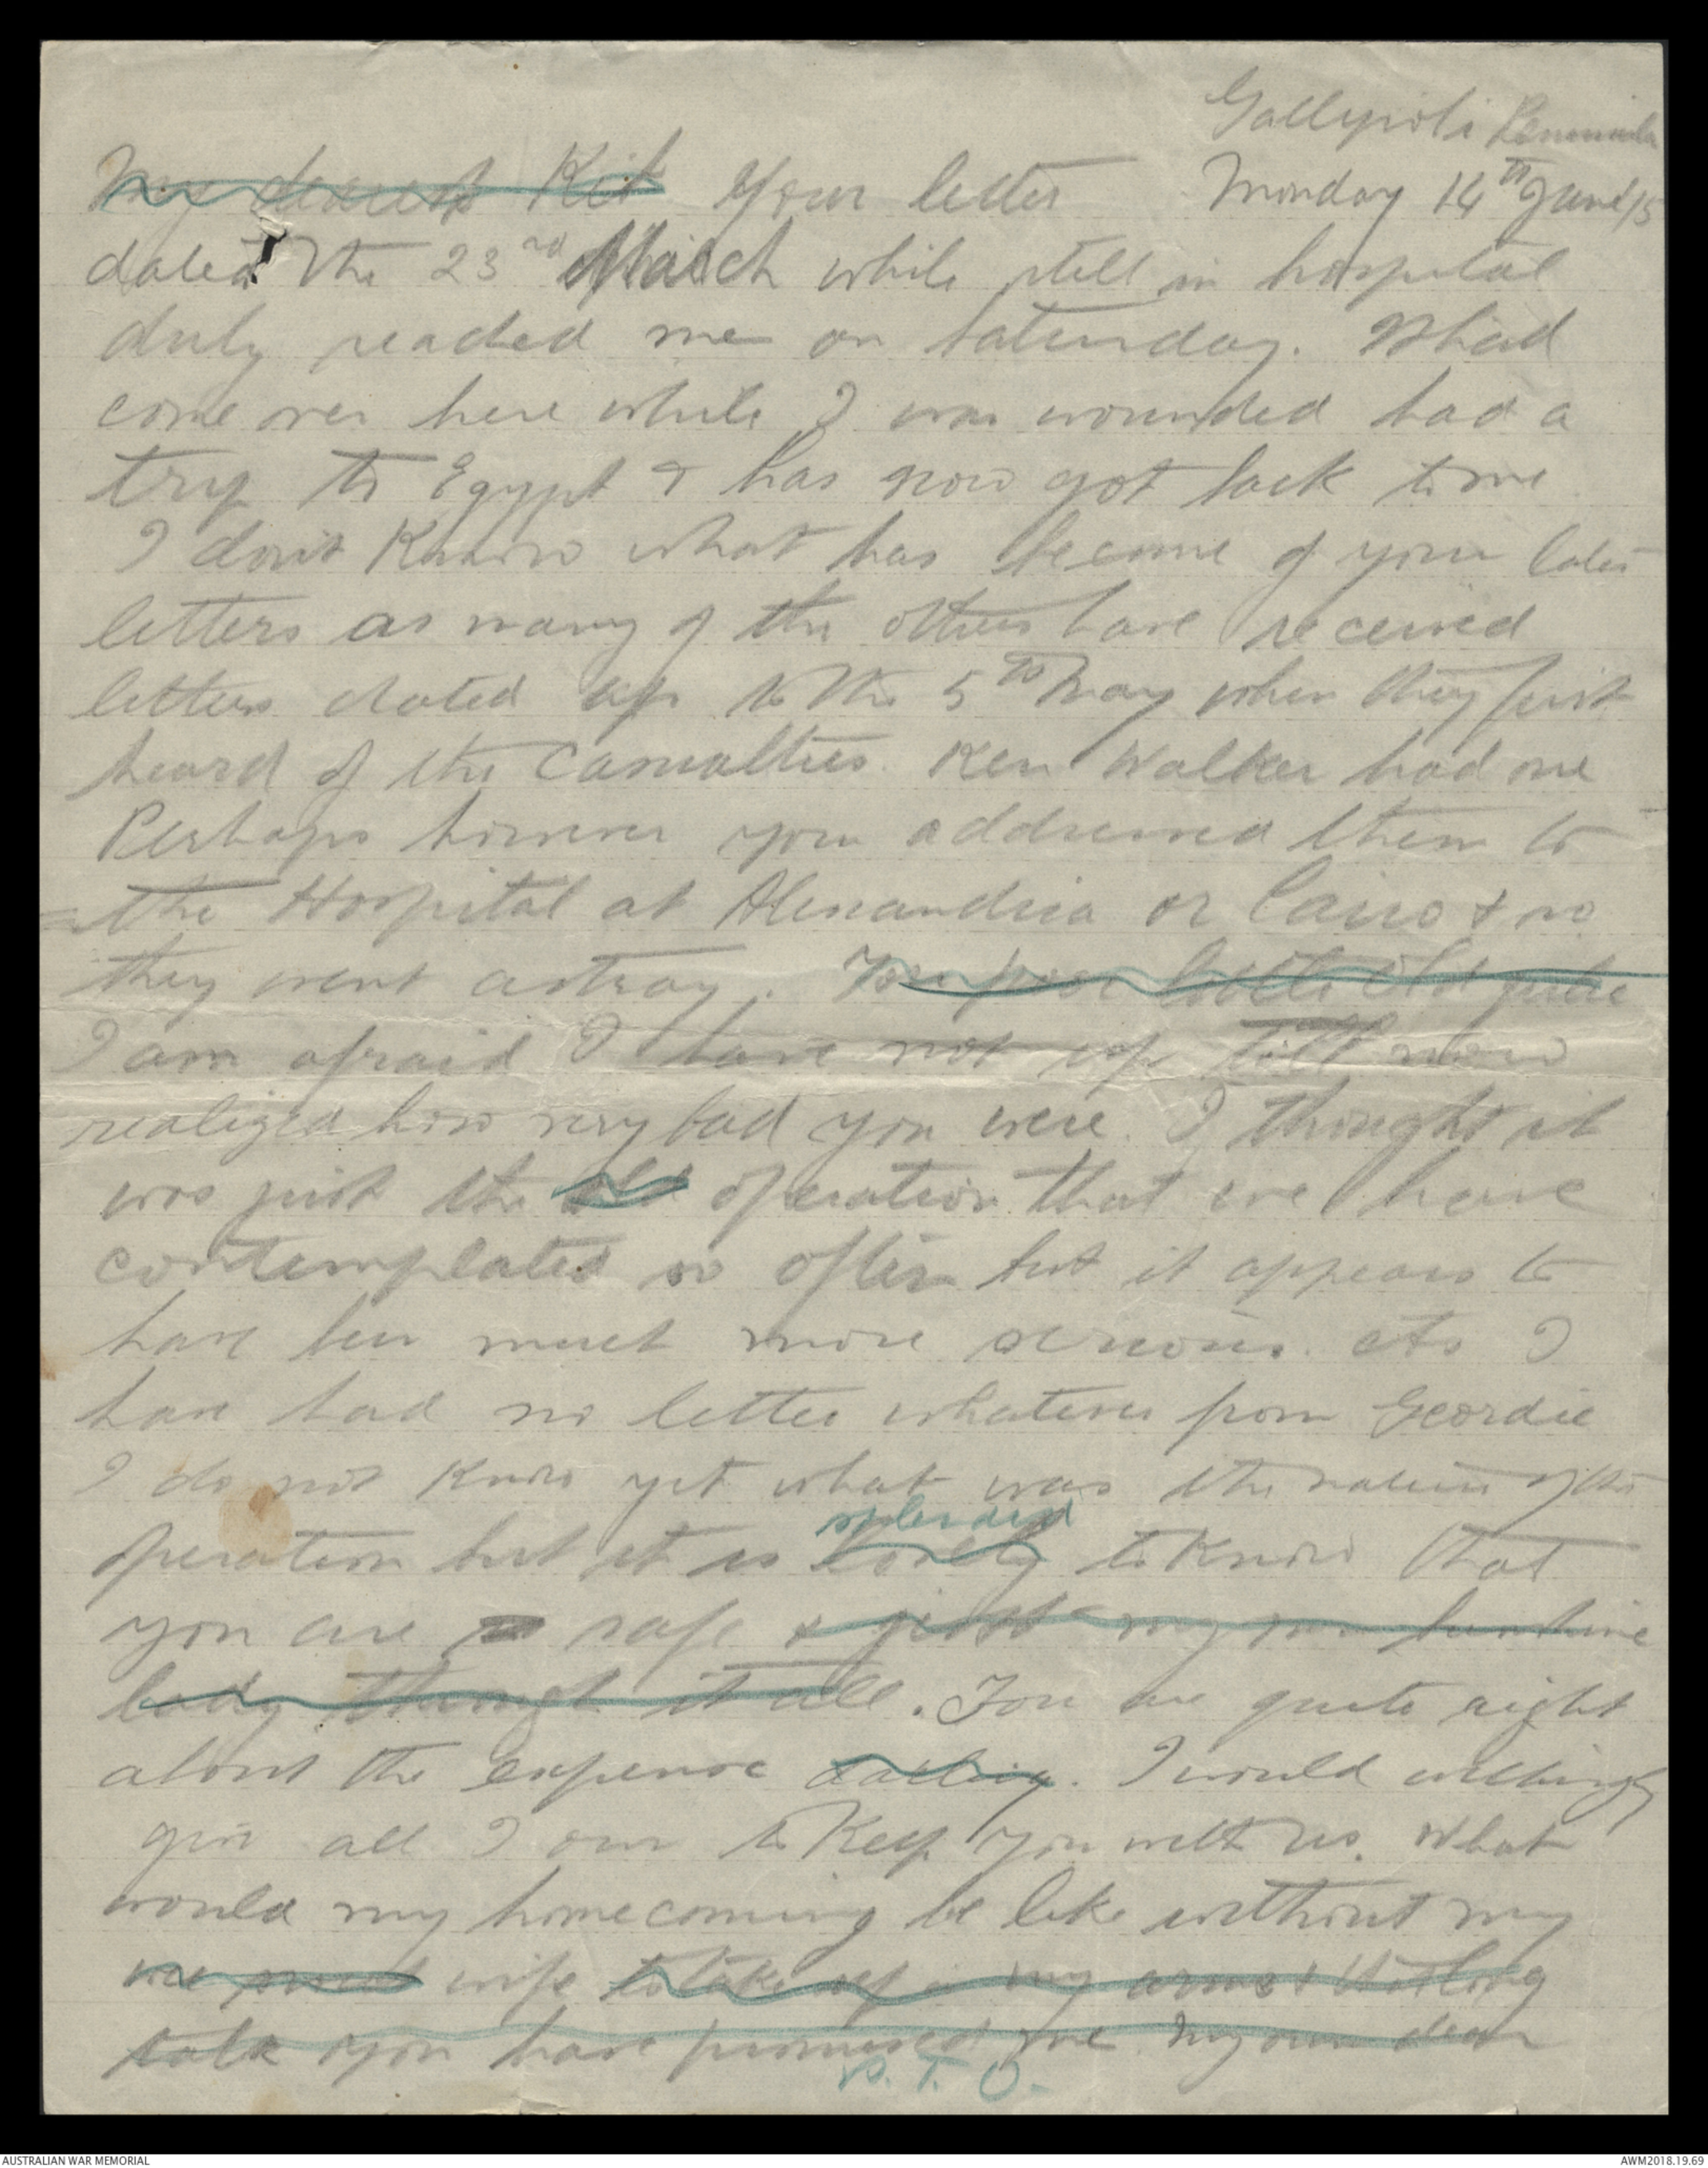 Gallipoli Peninsula
Monday 14th June/15
My dearest Kit Your letter
dated the 23rd March while still in hospital
duly reached me on Saturday. It had
come over here while I was wounded had a
trip to Egypt & has now got back to me.
I don't know what has become of your later
letters as many of the others have received
letters dated up to the 5th May when they first
heard of the casualties. Ken Walker had one
Perhaps however you addressed them to
the Hospital at Alexandria or Cairo & so
they went astray. You poor little old
I am afraid I have not up till now
realized how very bad you were. I thought it
was just the old operation that we have
contemplated so often but it appears to
have been much more serious. As I
have had no letter whatever from Geordie
I do not know yet what was the nature of the
splendid
operation but it is lovely to know that
you are safe & still my own sunshine
lady through it all. You are quite right
about the expense darling. I would willingly
give all I own to keep you with us. What
would my homecoming be like without my
wee sweet wife to take up in my arms &
talk you have promised me. My own dear
P.T.O.